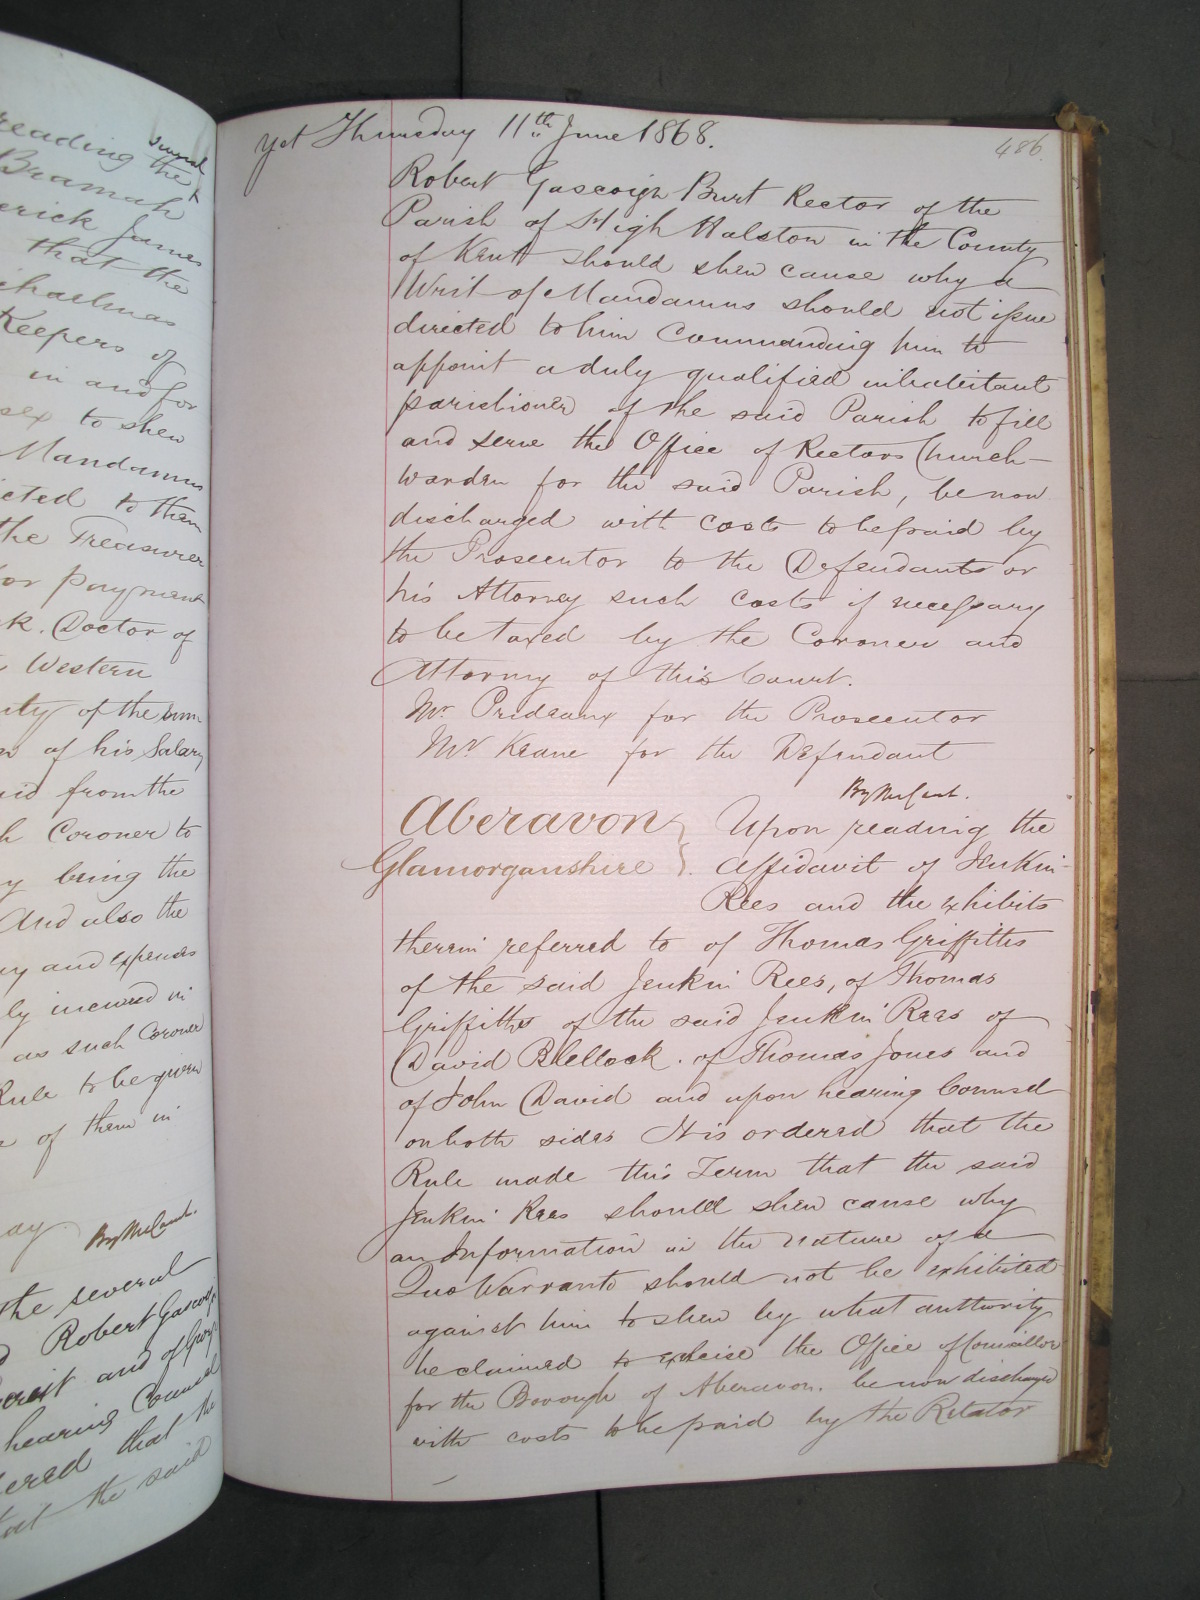 reading the several
Bramah
erick James
that the
ichaelmas
Keepers of
in and for
sex to shew
Mandamus
cted to them
the Treasurer
or payment
k. Doctor of
Western
ity of the sum
of his Salary
id from the
h Coroner to
y being the
And also the
ry and expenses
ly incurred in
as such Coroner
Rule to be given
of them in
ay By the Court.
the several
Robert Gascoig
and of Georg
hearing Counsel
ered that the
at the said
Yet Thursday 11th June 1868.
486.
Robert Gascoign Burt Rector of the
Parish of High Halston in the County
of Kent should shew cause why a
Writ of Mandamus should not issue
directed to him Commanding him to
appoint a duly qualified inhabitant
parishioner of the said Parish to fill
and serve the Office of Rectors Church-
warden for the said Parish, be now
discharged with costs to be paid by
the Prosecutor to the Defendants or
his Attorney such costs if necessary
to be taxed by the Coroner and
Attorney of this Court.
Mr. Prideaux for the Prosecutor
Mr. Keane for the Defendant
By the Court.
Aberavon } Upon reading the
Glamorganshire }. Affidavit of Jenkin
Rees and the exhibits
therein referred to of Thomas Griffiths
of the said Jenkin Rees, of Thomas
Griffiths of the said Jenkin Rees of
David Blellock. of Thomas Jones and
of John David and upon hearing Counsel
on both sides It is ordered that the
Rule made this Term that the said
Jenkin Rees should shew cause why
an Information in the nature of a
Quo Warranto should not be exhibited
against him to shew by what authority
he claimed to exercise the Office of Councillor
for the Borough of Aberavon. be now discharged
with costs to be paid by the Relator